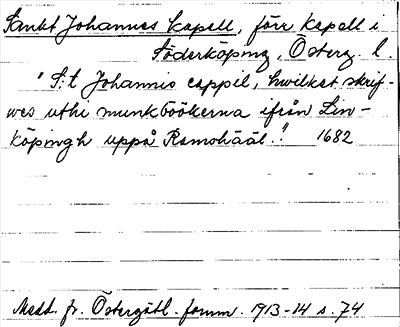 Sankt Johannes kapell, förr kapell i
Söderköping, Österg. l.
"S:t Johannis cappel, hwilket skrif-
wes uthi munkböökerna ifrån Lin-
köpingh uppå Ramshääl." 1682
Medd. fr. Östergötl. fornm. 1913-14 s. 74